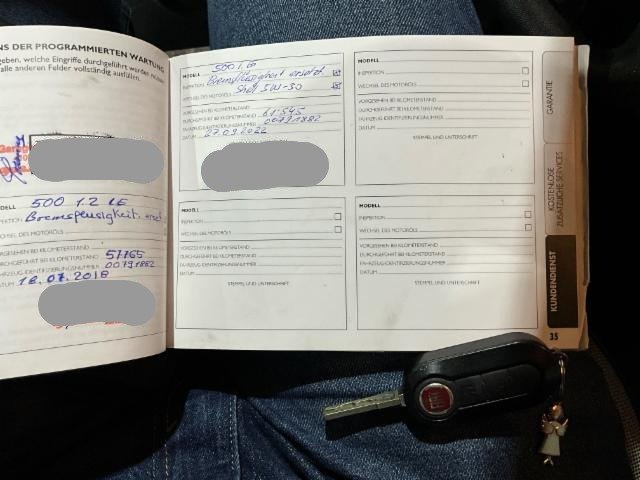 NS DER PROGRAMMIERTEN WARTUNG
geben, welche Eingriffe durchgeführt werden müssen
alle anderen Felder vollständig ausfüllen.
ODELL 500 1.2 LE
PEKTION Bremsflüssigkeit
HSEL DES MOTORÖLS
GESEHEN BEI KILOMETERSTAND
CHGEFÜHRT BEI KILOMETERSTAND 51765
HRZEUG-IDENTIFIZIERUNGSNUMMER 00791882
TUM 18.07.2018
MODELL 500 1.2
INSPEKTION Bremsflüssigkeit ersetzt
WECHSEL DES MOTORÖLS Shell 5W-30
VORGESEHEN BEI KILOMETERSTAND
DURCHGEFÜHRT BEI KILOMETERSTAND 61545
FAHRZEUG-IDENTIFIZIERUNGSNUMMER 00791882
DATUM 07.09.2022
MODELL
INSPEKTION
WECHSEL DES MOTORÖLS
VORGESEHEN BEI KILOMETERSTAND
DURCHGEFÜHRT BEI KILOMETERSTAND
FAHRZEUG-IDENTIFIZIERUNGSNUMMER
DATUM
STEMPEL UND UNTERSCHRIFT
MODELL
INSPEKTION
WECHSEL DES MOTORÖLS
VORGESEHEN BEI KILOMETERSTAND
DURCHGEFÜHRT BEI KILOMETERSTAND
FAHRZEUG-IDENTIFIZIERUNGSNUMMER
DATUM
STEMPEL UND UNTERSCHRIFT
MODELL
INSPEKTION
WECHSEL DES MOTORÖLS
VORGESEHEN BEI KILOMETERSTAND
DURCHGEFÜHRT BEI KILOMETERSTAND
FAHRZEUG-IDENTIFIZIERUNGSNUMMER
DATUM
STEMPEL UND UNTERSCHRIFT
GARANTIE
KOSTENLOSE
ZUSÄTZLICHE SERVICES
KUNDENDIENST
35
FIAT